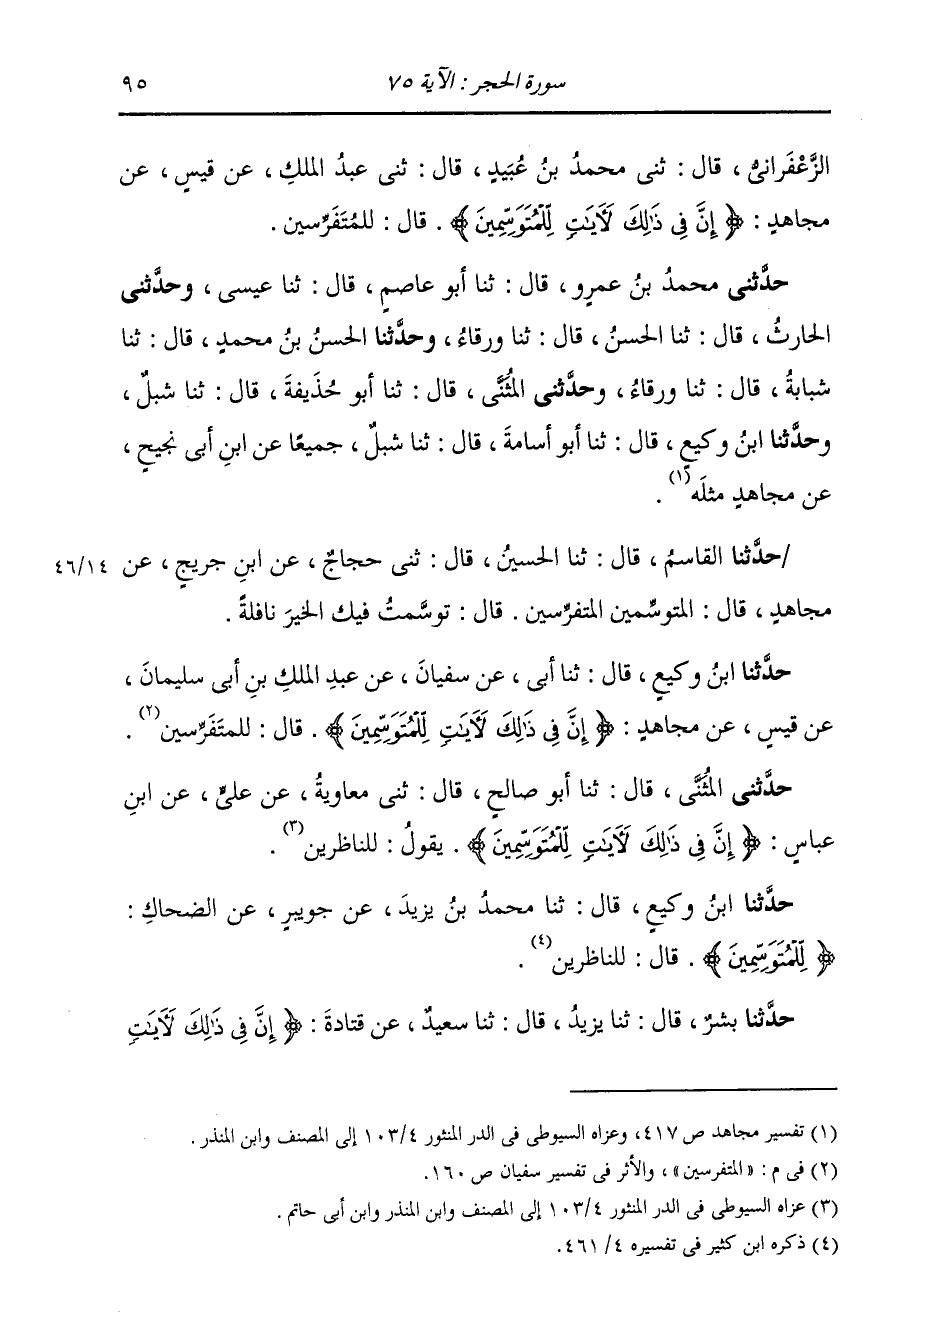 سورة الحجر : الآية ٧٥ ٩٥
الزَّعْفَرانىُّ ، قال : ثنى محمدُ بنُ عُبَيدٍ ، قال : ثنى عبدُ الملكِ ، عن قيسٍ ، عن
مجاهدٍ : ﴿ إِنَّ فِى ذَٰلِكَ لَآيَٰتٍ لِّلْمُتَوَسِّمِينَ ﴾ . قال : للمُتَفَرِّسين .
حدَّثنى محمدُ بنُ عمرٍو ، قال : ثنا أبو عاصمٍ ، قال : ثنا عيسى ، وحدَّثنى
الحارثُ ، قال : ثنا الحسنُ ، قال : ثنا ورقاءُ ، وحدَّثنا الحسنُ بنُ محمدٍ ، قال : ثنا
شبابةُ ، قال : ثنا ورقاءُ ، وحدَّثنى المُثَنَّى ، قال : ثنا أبو حُذَيفةَ ، قال : ثنا شبلٌ ،
وحدَّثنا ابنُ وكيعٍ ، قال : ثنا أبو أسامةَ ، قال : ثنا شبلٌ ، جميعًا عن ابنِ أبى نجيحٍ ،
عن مجاهدٍ مثلَه(١) .
/حدَّثنا القاسمُ ، قال : ثنا الحسينُ ، قال : ثنى حجاجٌ ، عن ابنِ جريجٍ ، عن ٤٦/١٤
مجاهدٍ ، قال : المتوسِّمين المتفرِّسين . قال : توسَّمتُ فيك الخيرَ نافلةً .
حدَّثنا ابنُ وكيعٍ ، قال : ثنا أبى ، عن سفيانَ ، عن عبدِ الملكِ بنِ أبى سليمانَ ،
عن قيسٍ ، عن مجاهدٍ : ﴿ إِنَّ فِى ذَٰلِكَ لَآيَٰتٍ لِّلْمُتَوَسِّمِينَ ﴾ . قال : للمتَفَرِّسين(٢) .
حدَّثنى المُثَنَّى ، قال : ثنا أبو صالحٍ ، قال : ثنى معاويةُ ، عن علىٍّ ، عن ابنِ
عباسٍ : ﴿ إِنَّ فِى ذَٰلِكَ لَآيَٰتٍ لِّلْمُتَوَسِّمِينَ ﴾ . يقولُ : للناظرين(٣) .
حدَّثنا ابنُ وكيعٍ ، قال : ثنا محمدُ بنُ يزيدَ ، عن جويبرٍ ، عن الضحاكِ :
﴿ لِّلْمُتَوَسِّمِينَ ﴾ . قال : للناظرين(٤) .
حدَّثنا بشرٌ ، قال : ثنا يزيدُ ، قال : ثنا سعيدٌ ، عن قتادةَ : ﴿ إِنَّ فِى ذَٰلِكَ لَآيَٰتٍ
(١) تفسير مجاهد ص ٤١٧، وعزاه السيوطى فى الدر المنثور ١٠٣/٤ إلى المصنف وابن المنذر .
(٢) فى م : «المتفرسين» ، والأثر فى تفسير سفيان ص ١٦٠.
(٣) عزاه السيوطى فى الدر المنثور ١٠٣/٤ إلى المصنف وابن المنذر وابن أبى حاتم .
(٤) ذكره ابن كثير فى تفسيره ٤٦١/٤.